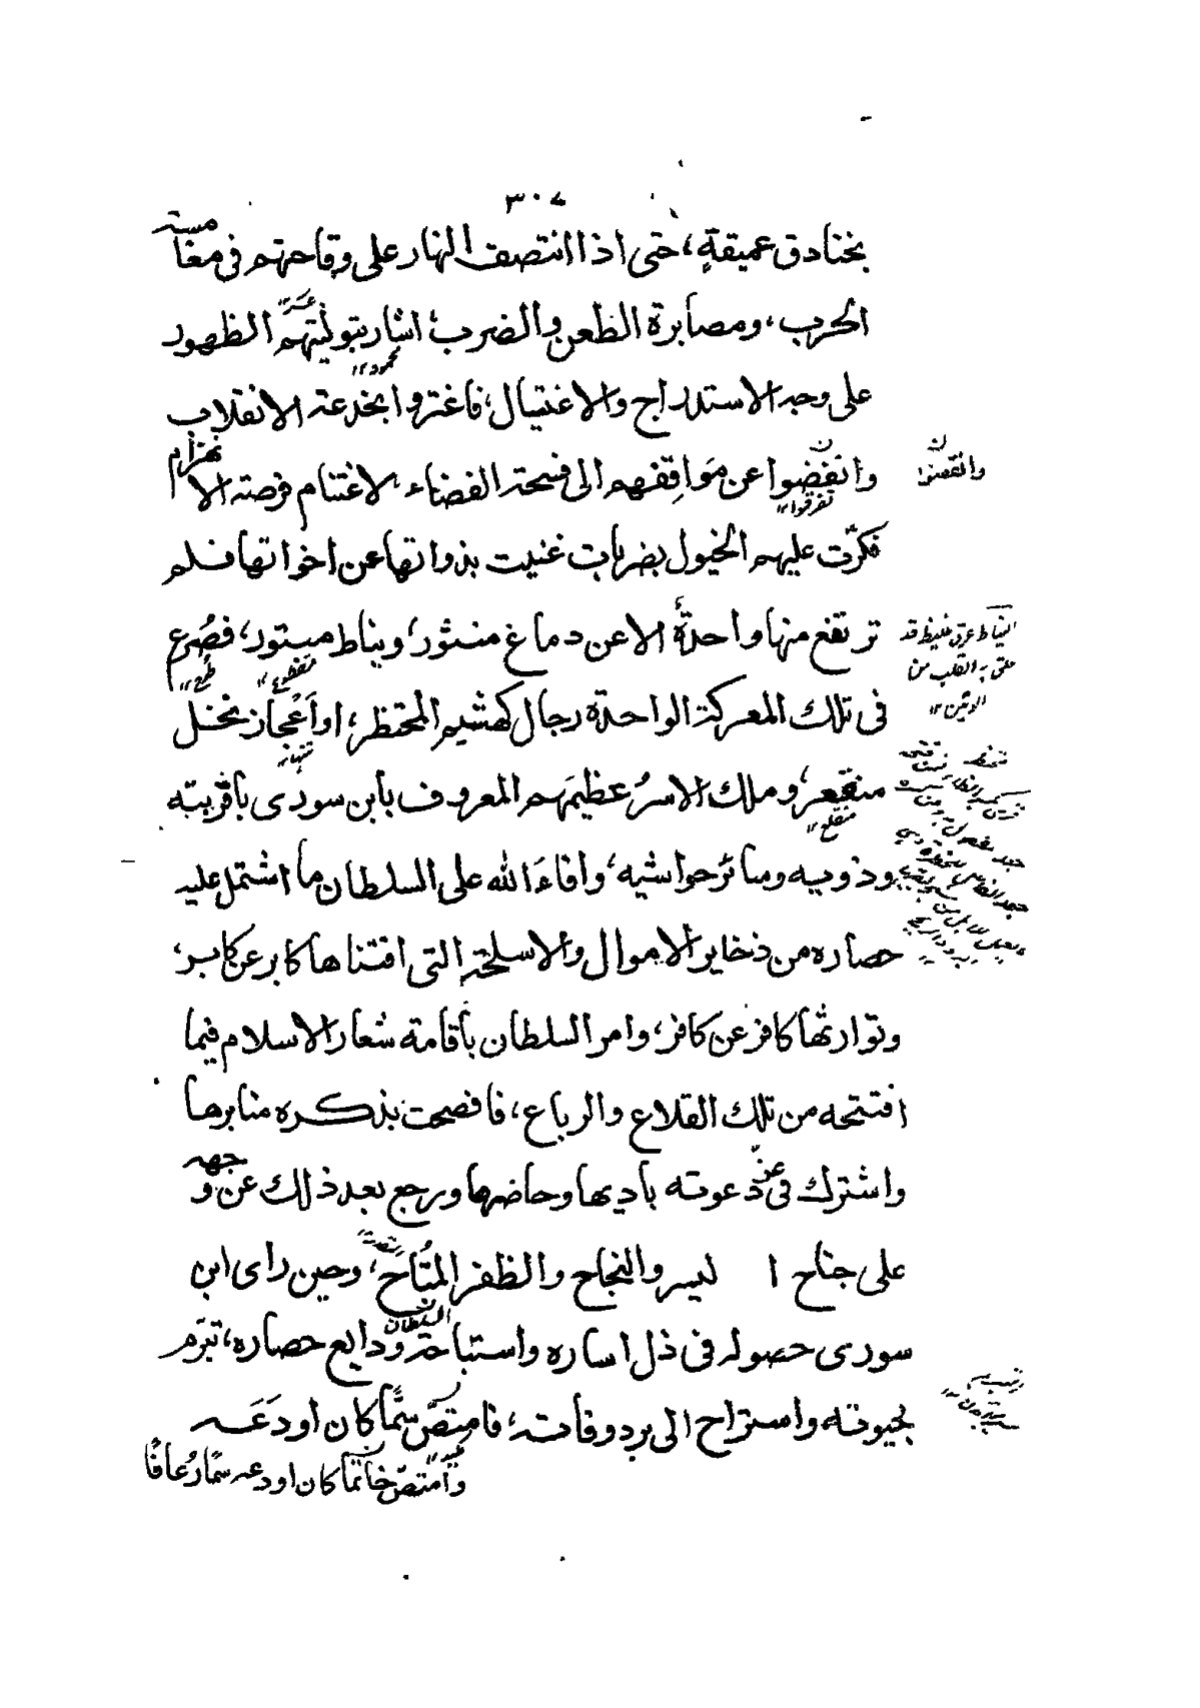 ٣٠٧
بخنادق عميقةٍ، حتى اذا انتصف النهار على وقاحتهم فى مغامسته
الحرب، ومصابرة الطعن والضرب، اشار بتوليتهم الظهور
محمود١٢
على وجه الاستدراج والاغتيال، فاغتروا بخدعة الانقلاب
وانفضوا عن مَواقِفهم الى فسحة الفضاء، لاغتنام فرصة الانهزام
تفرقوا١٢
فكرّت عليهم الخيول بضربات غنيت بذواتها عن اخواتها فلم
ترتفع منها واحدةٌ الا عن دماغ منثور، ونياط مبتور، فصُرع
مقطوع١٢
طُرح١٢
النياط عرق غليظ قد
علق به القلب من
الوتين١٢
فى تلك المعركة الواحدة رجال كهشيم المحتظر، او اَعْجاز نخل
منقعر، وملك الاسرُ عظيمَهم المعروف بابن سورى باقربيته
منقلع١٢
وذويه وسائر حواشيه، وافاءَ الله على السلطان ما اشتمل عليه
حصاره من ذخاير الاموال والاسلحة التى اقتناها كابر عن كابر،
وتوارثها كافر عن كافر، وامر السلطان باقامة شعار الاسلام فيما
افتتحه من تلك القلاع والرباع، فافصحت بذكره منابرها
واشترك فى عزّ دعوته باديها وحاضرها ورجع بعد ذلك عن وجهه
على جناح ا ليسر والنجاح والظفر المُتَاحَ، وحين راى ابن
سورى حصوله فى ذل اساره واستباحة السلطان ودايع حصاره، تبرّم
بحيوته واستراح الى برد وفاته، فامتصّ سمًّا كان اودَعَه
وامتصّ خاتمًا كان اودعه سمًّا زُعافًا